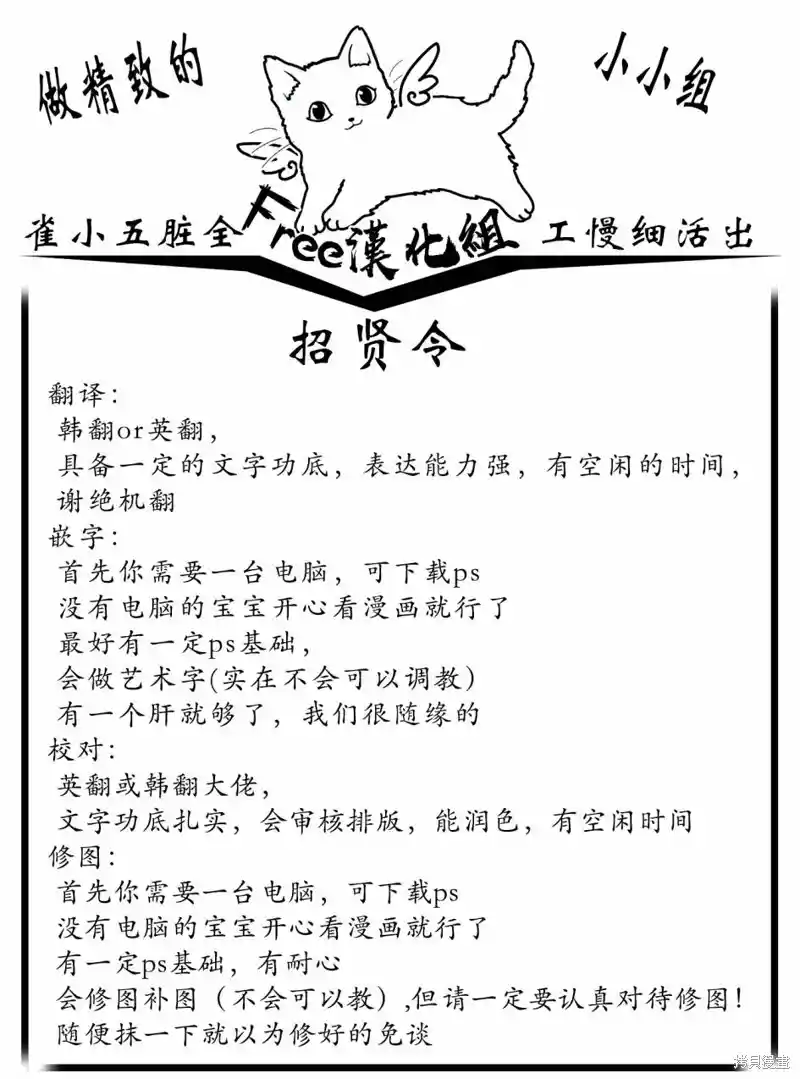 做精致的
小小组
雀小五脏全
Free漢化組
工慢细活出
招贤令
翻译：
韩翻or英翻，
具备一定的文字功底，表达能力强，有空闲的时间，
谢绝机翻
嵌字：
首先你需要一台电脑，可下载ps
没有电脑的宝宝开心看漫画就行了
最好有一定ps基础，
会做艺术字(实在不会可以调教）
有一个肝就够了，我们很随缘的
校对：
英翻或韩翻大佬，
文字功底扎实，会审核排版，能润色，有空闲时间
修图：
首先你需要一台电脑，可下载ps
没有电脑的宝宝开心看漫画就行了
有一定ps基础，有耐心
会修图补图（不会可以教）,但请一定要认真对待修图！
随便抹一下就以为修好的免谈
拷貝漫畫